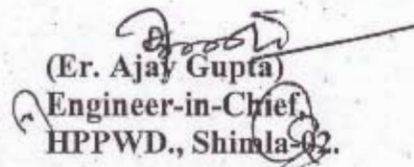 (Er. Ajay Gupta)
Engineer-in-Chief,
HPPWD., Shimla-02.